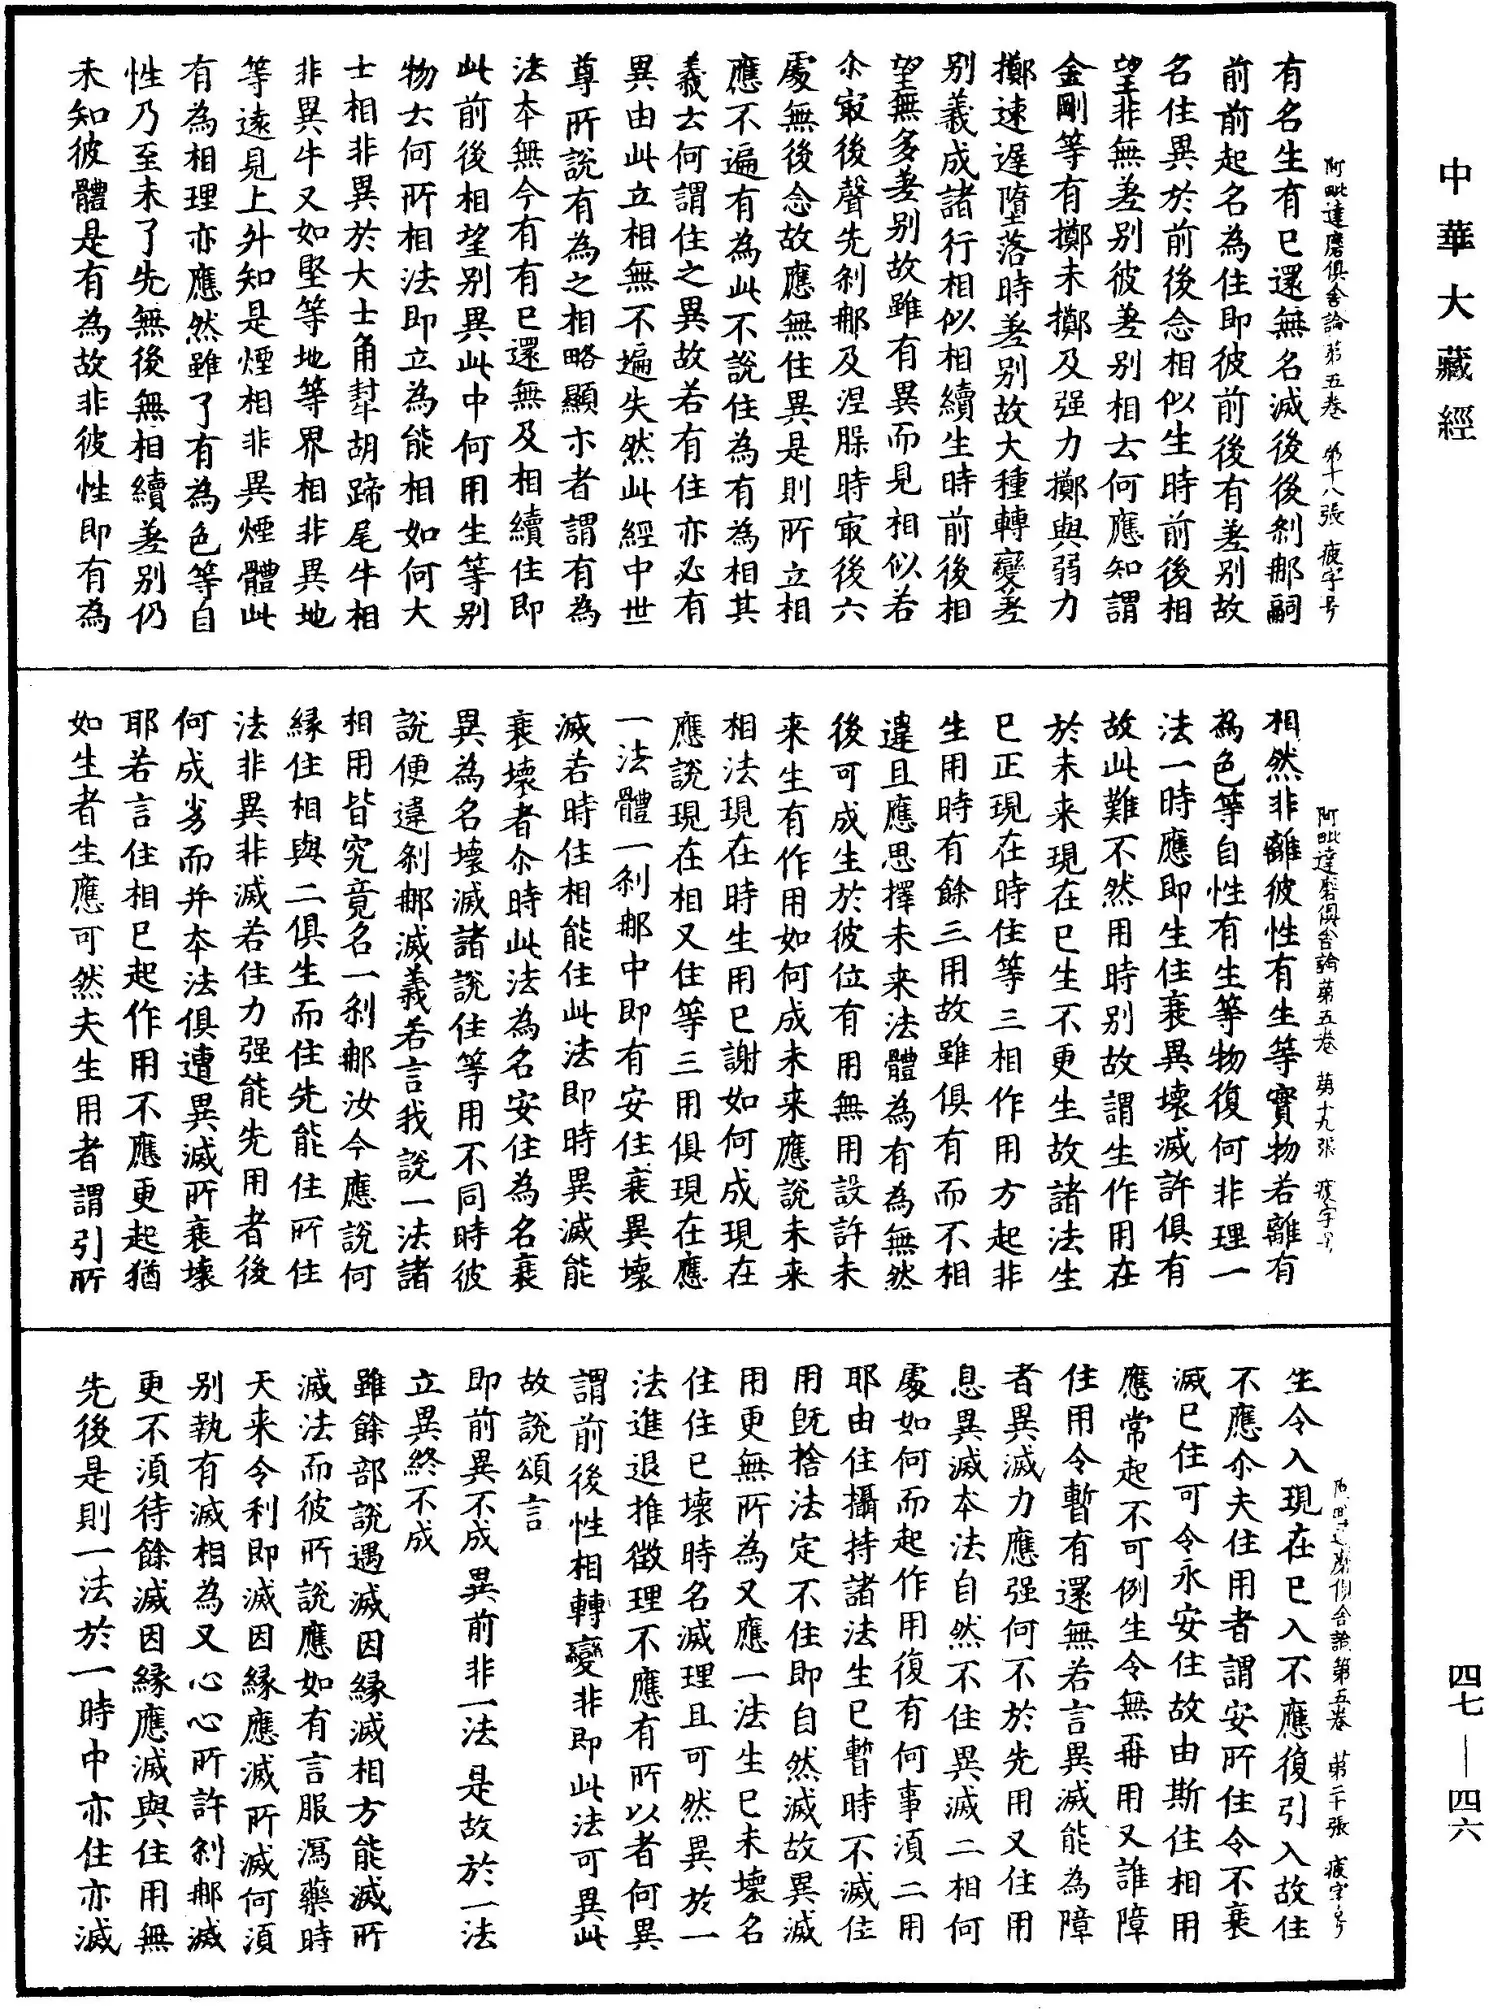 中華大藏經
四七—四六
阿毗達磨俱舍論第五卷 第十八張 疲字号
有名生有已還無名滅後後剎那嗣
前前起名為住即彼前後有差別故
名住異於前後念相似生時前後相
望非無差別彼差別相云何應知謂
金剛等有擲未擲及强力擲與弱力
擲速遲墮落時差別故大種轉變差
別義成諸行相似相續生時前後相
望無多差別故雖有異而見相似若
尒㝡後聲先剎那及涅脲時㝡後六
處無後念故應無住異是則所立相
應不遍有為此不說住為有為相其
義云何謂住之異故若有住亦必有
異由此立相無不遍失然此經中世
尊所說有為之相略顯示者謂有為
法本無今有有已還無及相續住即
此前後相望別異此中何用生等別
物云何所相法即立為能相如何大
士相非異於大士角犎胡蹄尾牛相
非異牛又如堅等地等界相非異地
等遠見上外知是煙相非異煙體此
有為相理亦應然雖了有為色等自
性乃至未了先無後無相續差別仍
未知彼體是有為故非彼性即有為
阿毗達磨俱舍論第五卷 第十九張 疲字号
相然非離彼性有生等實物若離有
為色等自性有生等物復何非理一
法一時應即生住衰異壞滅許俱有
故此難不然用時別故謂生作用在
於未来現在已生不更生故諸法生
已正現在時住等三相作用方起非
生用時有餘三用故雖俱有而不相
違且應思擇未来法體為有為無然
後可成生於彼位有用無用設許未
来生有作用如何成未来應說未来
相法現在時生用已謝如何成現在
應說現在相又住等三用俱現在應
一法體一剎那中即有安住衰異壞
滅若時住相能住此法即時異滅能
衰壞者尒時此法為名安住為名衰
異為名壞滅諸說住等用不同時彼
說便違剎那滅義若言我說一法諸
相用皆究竟名一剎那汝今應說何
緣住相與二俱生而住先能住所住
法非異非滅若住力强能先用者後
何成劣而并本法俱遭異滅所衰壞
耶若言住相已起作用不應更起猶
如生者生應可然夫生用者謂引所
第五卷 第二十張 疲字号
生令入現在已入不應復引入故住
不應尒夫住用者謂安所住令不衰
滅已住可令永安住故由斯住相用
應常起不可例生令無再用又誰障
住用令暫有還無若言異滅能為障
者異滅力應强何不於先用又住用
息異滅本法自然不住異滅二相何
處如何而起作用復有何事須二用
耶由住攝持諸法生已暫時不滅住
用既捨法定不住即自然滅故異滅
用更無所為又應一法生已未壞名
住住已壞時名滅理且可然異於一
法進退推徵理不應有所以者何異
謂前後性相轉變非即此法可異此
故說頌言
即前異不成 異前非一法 是故於一法
立異終不成
雖餘部說遇滅因緣滅相方能滅所
滅法而彼所說應如有言服瀉藥時
天来令利即滅因緣應滅所滅何須
別執有滅相為又心心所許剎那滅
更不須待餘滅因緣應滅與住用無
先後是則一法於一時中亦住亦滅